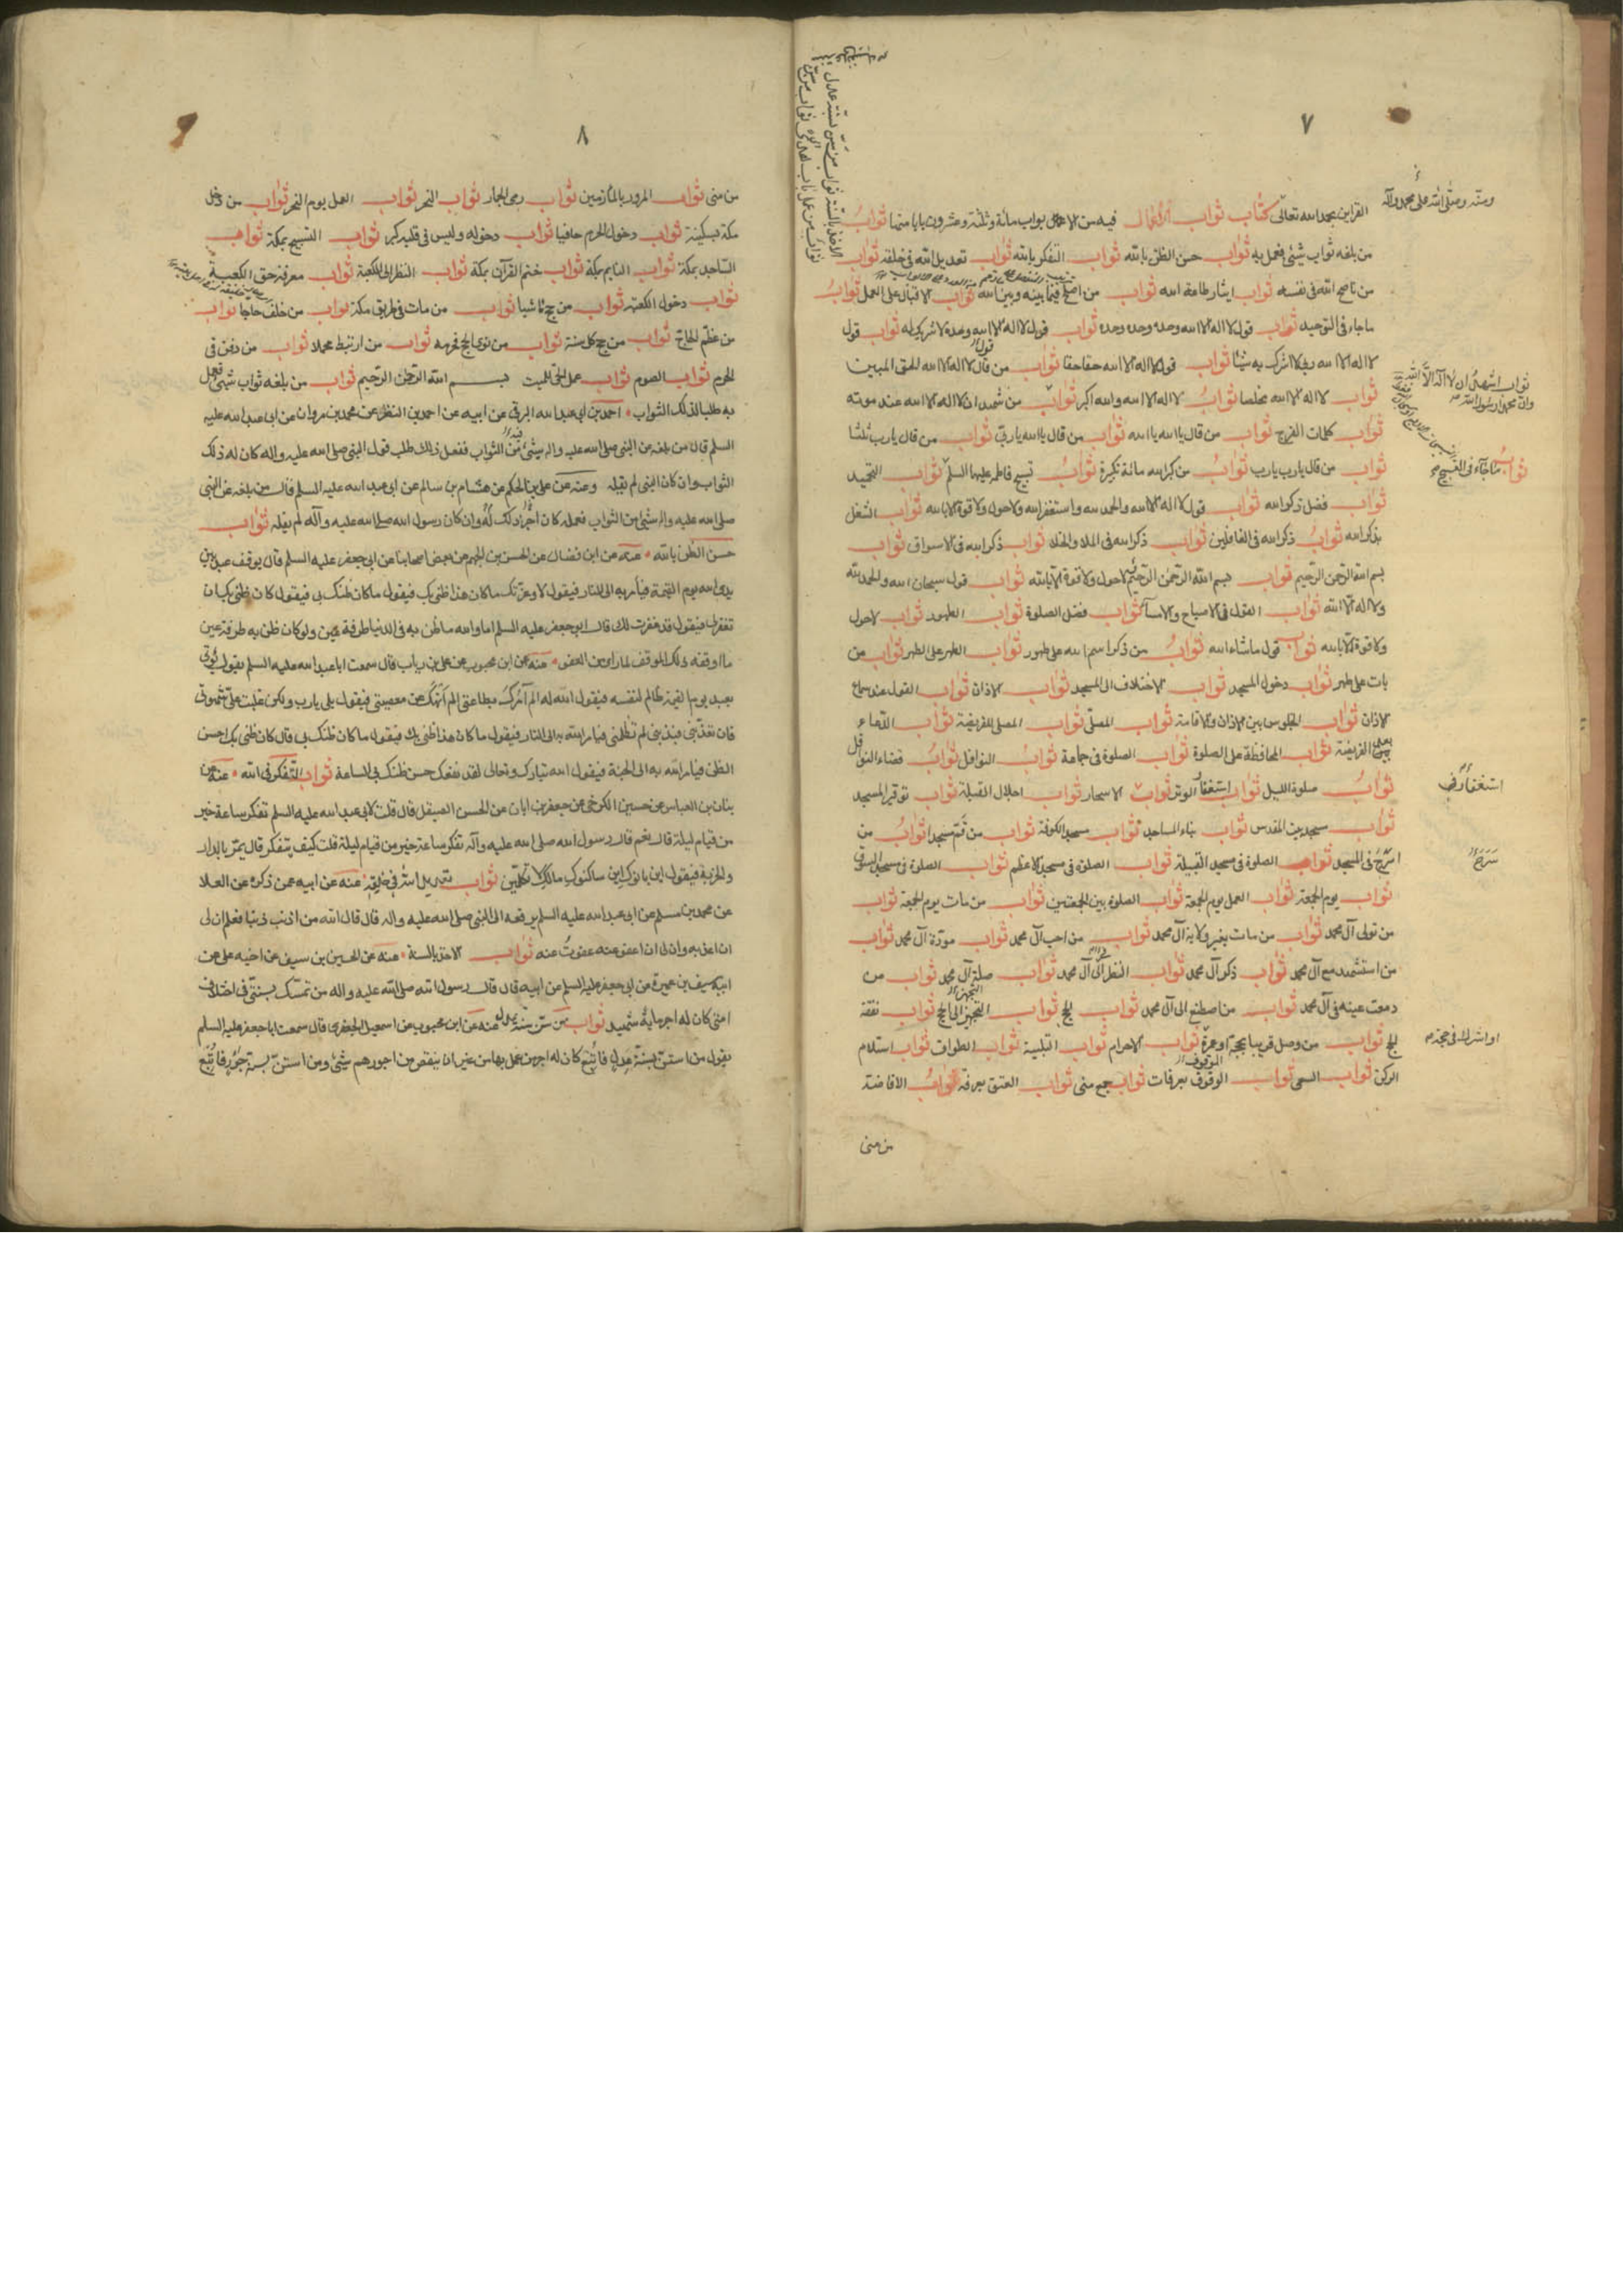 ٧
القراین بحمد الله تعالی کتاب ثواب الاعمال فیه من الاعمال بواب مائة وثلثة وعشرون بابا منها ثواب
من بلغه ثواب شیٔ فعمل به ثواب حسن الظن بالله ثواب التفکر بالله ثواب تعدیل الله فی خلقه ثواب
من ناصح الله فی نفسه ثواب ایثار طاعة الله ثواب من اصلح فیما بینه وبین الله ثواب الاقبال علی العمل ثواب
ما جاء فی التوحید ثواب قول لا اله الا الله وحده وحده وحده ثواب قول لا اله الا الله وحده لا شریک له ثواب قول
لا اله الا الله ربی لا اشرک به شیئا ثواب قول لا اله الا الله حقا حقا ثواب من قال لا اله الا الله الحق المبین
ثواب لا اله الا الله مخلصا ثواب لا اله الا الله والله اکبر ثواب من شهد ان لا اله الا الله عند موته
ثواب کلمات الفرج ثواب من قال یا الله یا الله ثواب من قال یا الله یا ربی ثواب من قال یا رب ثلثا
ثواب من قال یا رب یا رب ثواب من کبر الله مائة تکبیرة ثواب تسبیح فاطمه علیها السلم ثواب التحمید
ثواب فضل ذکر الله ثواب قول لا اله الا الله والحمد لله واستغفر الله ولا حول ولا قوة الا بالله ثواب الشغل
بذکر الله ثواب ذکر الله فی الغافلین ثواب ذکر الله فی الملاء والخلاء ثواب ذکر الله فی الاسواق ثواب
بسم الله الرحمن الرحیم ثواب بسم الله الرحمن الرحیم لا حول ولا قوة الا بالله ثواب قول سبحان الله والحمد لله
ولا اله الا الله ثواب القول فی الاصباح والامساء ثواب فضل الصلوة ثواب الطهور ثواب لا حول
ولا قوة الا بالله ثواب قول ما شاء الله ثواب من ذکر اسم الله علی طهور ثواب الطهر علی الطهر ثواب من
بات علی طهر ثواب دخول المسجد ثواب الاختلاف الی المسجد ثواب الاذان ثواب القول عند سماع
الاذان ثواب الجلوس بین الاذان والاقامة ثواب المصلی ثواب المصلی للفریضة ثواب الدعاء
بعد الفریضة ثواب المحافظة علی الصلوة ثواب الصلوة فی جماعة ثواب النوافل ثواب قضاء النوافل
ثواب صلوة اللیل ثواب استغفار الوتر ثواب الاسحار ثواب اجلال القبلة ثواب توقیر المسجد
ثواب مسجد بیت المقدس ثواب بناء المساجد ثواب مسجد الکوفة ثواب من قم مسجدا ثواب من
اسرج فی المسجد ثواب الصلوة فی مسجد القبیلة ثواب الصلوة فی مسجد الاعظم ثواب الصلوة فی مسجد السوق
ثواب یوم الجمعة ثواب العمل یوم الجمعة ثواب الصلوة بین الجمعتین ثواب من مات یوم الجمعة ثواب
من تولی آل محمد ثواب من مات بغیر ولایة آل محمد ثواب من احب آل محمد ثواب مودة آل محمد ثواب
من استشهد مع آل محمد ثواب ذکر آل محمد ثواب النظر الی آل محمد ثواب صلة آل محمد ثواب من
دمعت عینه فی آل محمد ثواب من اصطنع الی آل محمد ثواب الحج ثواب التجهز الی الحج ثواب نفقة
الحج ثواب من وصل قریبا بحجة او عمرة ثواب الاحرام ثواب التلبیة ثواب الطواف ثواب استلام
الرکن ثواب السعی ثواب الوقوف بعرفات ثواب جمع منی ثواب العتق بعرفة ثواب الافاضة
من منی
ثواب اشهد ان لا اله الا الله
وان محمدا رسول الله
ثواب ما جاء فی التسبیح
استغفار فی
سرج
او اشرکه فی حجته
٨
من منی ثواب المرور بالمازمین ثواب رمی الجمار ثواب النحر ثواب العمل یوم النحر ثواب من دخل
مکة بسکینة ثواب دخول الحرم حافیا ثواب دخوله ولیس فی قلبه کبر ثواب التسبیح بمکة ثواب
الساجد بمکة ثواب النایم بمکة ثواب ختم القرآن بمکة ثواب النظر الی الکعبة ثواب معرفة حق الکعبة
ثواب دخول الکعبة ثواب من حج ماشیا ثواب من مات فی طریق مکة ثواب من خلف حاجا ثواب
من عظم الحاج ثواب من حج کل سنة ثواب من نوی الحج فحرمه ثواب من ارتبط محملا ثواب من دفن فی
الحرم ثواب الصوم ثواب عمل الحی للمیت بسم الله الرحمن الرحیم ثواب من بلغه ثواب شیٔ فعمل
به طلبا لذلک الثواب احمد بن ابی عبد الله البرقی عن ابیه عن احمد بن النظر عن محمد بن مروان عن ابی عبد الله علیه
السلم قال من بلغه عن النبی صلی الله علیه واله شیٔ من الثواب ففعل ذلک طلب قول النبی صلی الله علیه واله کان له ذلک
الثواب وان کان النبی لم یقله وعنه عن علی بن الحکم عن هشام بن سالم عن ابی عبد الله علیه السلم قال من بلغه عن النبی
صلی الله علیه واله شیٔ من الثواب فعمله کان اجر ذلک له وان کان رسول الله صلی الله علیه وآله لم یقله ثواب
حسن الظن بالله عنه عن ابن فضال عن الحسن بن الجهم عن بعض اصحابنا عن ابی جعفر علیه السلم قال یوقف عبد بین
یدی الله یوم القیمة فیأمر به الی النار فیقول لا وعزتک ما کان هذا ظنی بک فیقول ما کان ظنک بی فیقول کان ظنی بک ان
تغفر لی فیقول قد غفرت لک قال ابو جعفر علیه السلم اما والله ما ظن به فی الدنیا طرفة عین ولو کان ظن به طرفة عین
ما اوقفه ذلک الموقف لما رای من العفو عنه عن ابن محبوب عن علی بن ریاب قال سمعت ابا عبد الله علیه السلم یقول یؤتی
بعبد یوم القیمة ظالم لنفسه فیقول الله له الم آمرک بطاعتی الم انهک عن معصیتی فیقول بلی یا رب ولکن غلبت علی شهوتی
فان تعذبنی فبذنبی لم تظلمنی فیامر الله به الی النار فیقول ما کان هذا ظنی بک فیقول ما کان ظنک بی قال کان ظنی بک احسن
الظن فیامر الله به الی الجنة فیقول الله تبارک وتعالی لقد نفعک حسن ظنک بی الساعة ثواب التفکر فی الله عنه عن
بنان بن العباس عن حسین الکرخی عن جعفر بن ابان عن الحسن الصیقل قال قلت لابی عبد الله علیه السلم تفکر ساعة خیر
من قیام لیلة قال نعم قال رسول الله صلی الله علیه وآله تفکر ساعة خیر من قیام لیلة قلت کیف یتفکر قال یمر بالدار
والخربة فیقول این بانوک این ساکنوک مالک لا تکلمین ثواب تعدیل الله فی خلقه عنه عن ابیه عمن ذکره عن العلا
عن محمد بن مسلم عن ابی عبد الله علیه السلم یرفعه الی النبی صلی الله علیه واله قال قال الله من اذنب ذنبا فعلم ان لی
ان اعذبه وان لی ان اعفو عنه عفوت عنه ثواب الاخذ بالسنة عنه عن الحسین بن سیف عن اخیه علی عن
ابیه سیف بن عمیرة عن ابی جعفر علیه السلم عن ابیه قال قال رسول الله صلی الله علیه واله من تمسک بسنتی فی اختلاف
امتی کان له اجر مایة شهید ثواب من سن سنة عدل عنه عن ابن محبوب عن اسمعیل الجعفری قال سمعت ابا جعفر علیه السلم
یقول من استن بسنة عدل فاتبع کان له اجر من عمل بها من غیر ان ینتقص من اجورهم شیٔ ومن استن بسنة جور فاتبع